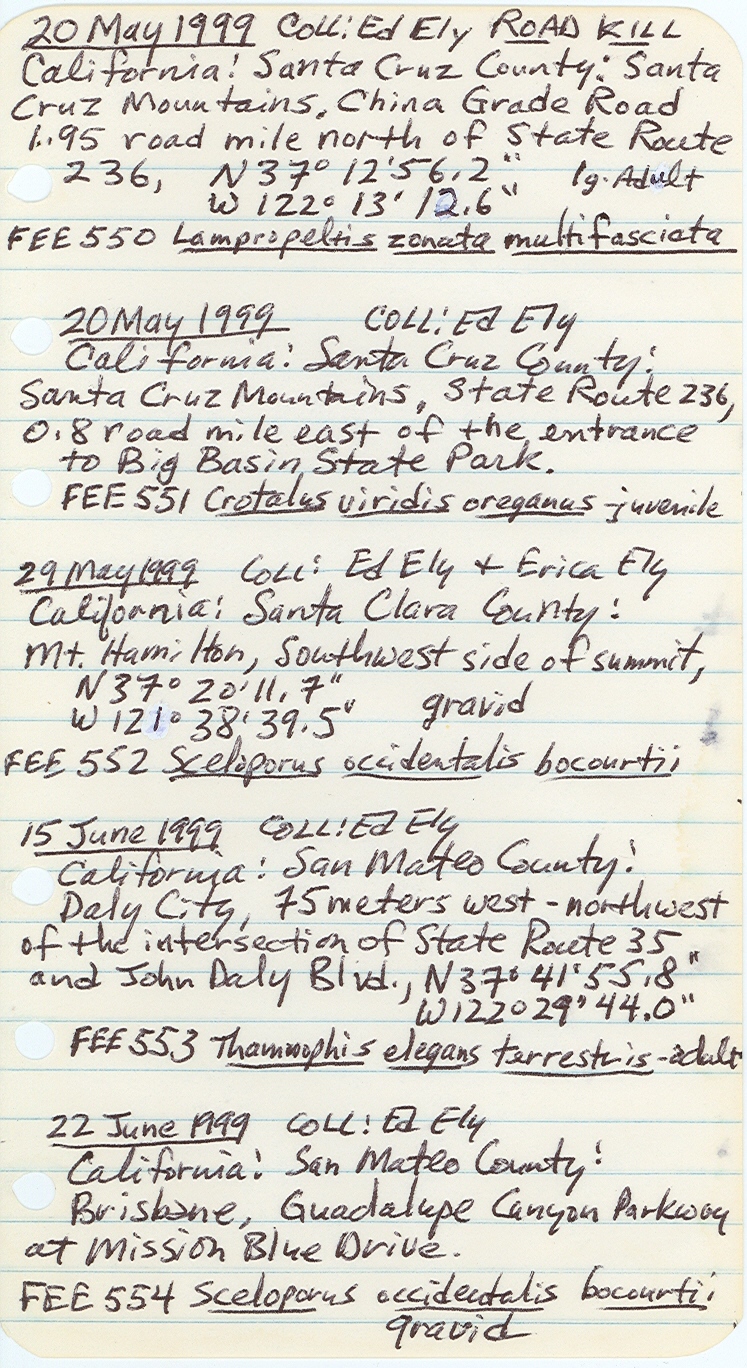 20 May 1999 Coll: Ed Ely ROAD KILL
California: Santa Cruz County: Santa
Cruz Mountains, China Grade Road
1.95 road mile north of State Route
236, N 37° 12' 56.2" lg. Adult
W 122° 13' 12.6"
FEE 550 Lampropeltis zonata multifasciata
20 May 1999 COLL: Ed Ely
California: Santa Cruz County:
Santa Cruz Mountains, State Route 236,
0.8 road mile east of the entrance
to Big Basin State Park.
FEE 551 Crotalus viridis oreganus - juvenile
29 May 1999 Coll: Ed Ely + Erica Ely
California: Santa Clara County:
Mt. Hamilton, Southwest side of summit,
N 37° 20' 11.7"
W 121° 38' 39.5" gravid
FEE 552 Sceloporus occidentalis bocourtii
15 June 1999 COLL: Ed Ely
California: San Mateo County:
Daly City, 75 meters west - northwest
of the intersection of State Route 35
and John Daly Blvd., N 37° 41' 55.8"
W 122° 29' 44.0"
FEE 553 Thamnophis elegans terrestris - adult
22 June 1999 COLL: Ed Ely
California: San Mateo County:
Brisbane, Guadalupe Canyon Parkway
at Mission Blue Drive.
FEE 554 Sceloporus occidentalis bocourtii
gravid